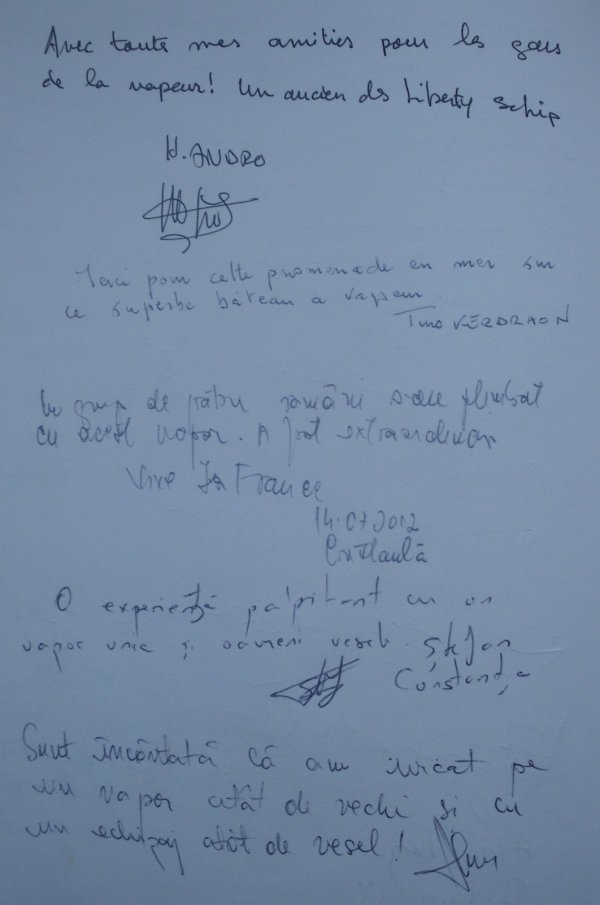 Avec toute mes amitiés pour les gars
de la vapeur! Un ancien ds Liberty Schip
H. ANDRO
Merci pour cette promenade en mer sur
ce superbe bâteau à vapeur
Tino VERDRAON
Un grup de patru români s-au plimbat
cu acest vapor. A fost extraordinar
Vive la France
14.07.2012
O experiență palpitant cu un
vapor unic și oameni veseli. Ștefan
Constanța
Sunt încântată că am urcat pe
un vapor atât de vechi și cu
un echipaj atât de vesel!